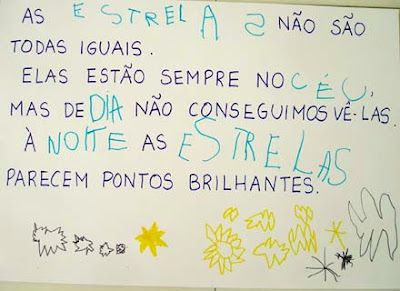 AS ESTRELAS NÃO SÃO
TODAS IGUAIS.
ELAS ESTÃO SEMPRE NO CÉU,
MAS DE DIA NÃO CONSEGUIMOS VÊ-LAS.
À NOITE AS ESTRELAS
PARECEM PONTOS BRILHANTES.